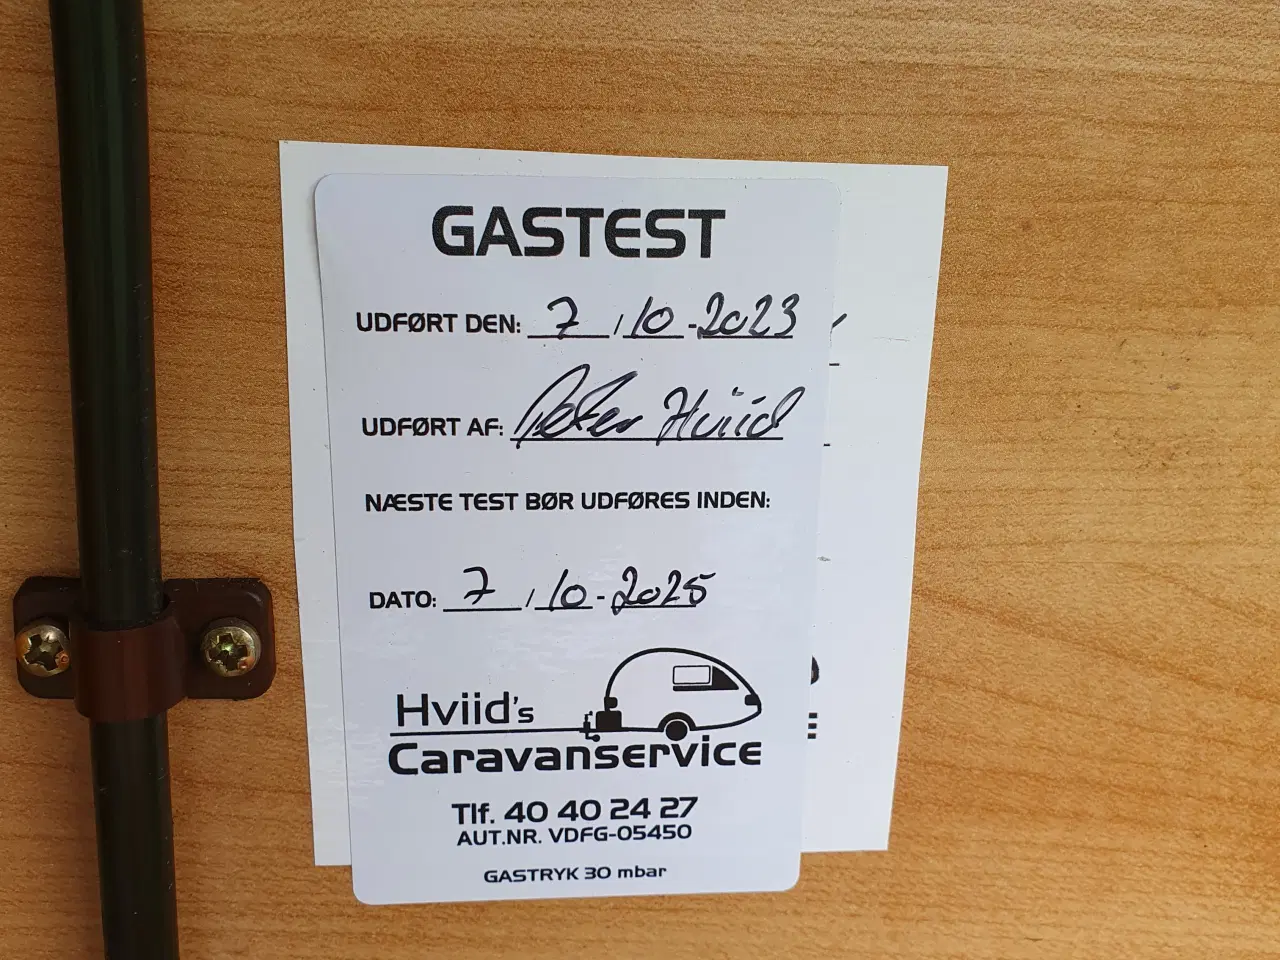 GASTEST
UDFØRT DEN: 7 / 10 - 2023
UDFØRT AF: Peter Hviid
NÆSTE TEST BØR UDFØRES INDEN:
DATO: 7 / 10 - 2025
Hviid's
Caravanservice
Tlf. 40 40 24 27
AUT.NR. VDFG-05450
GASTRYK 30 mbar